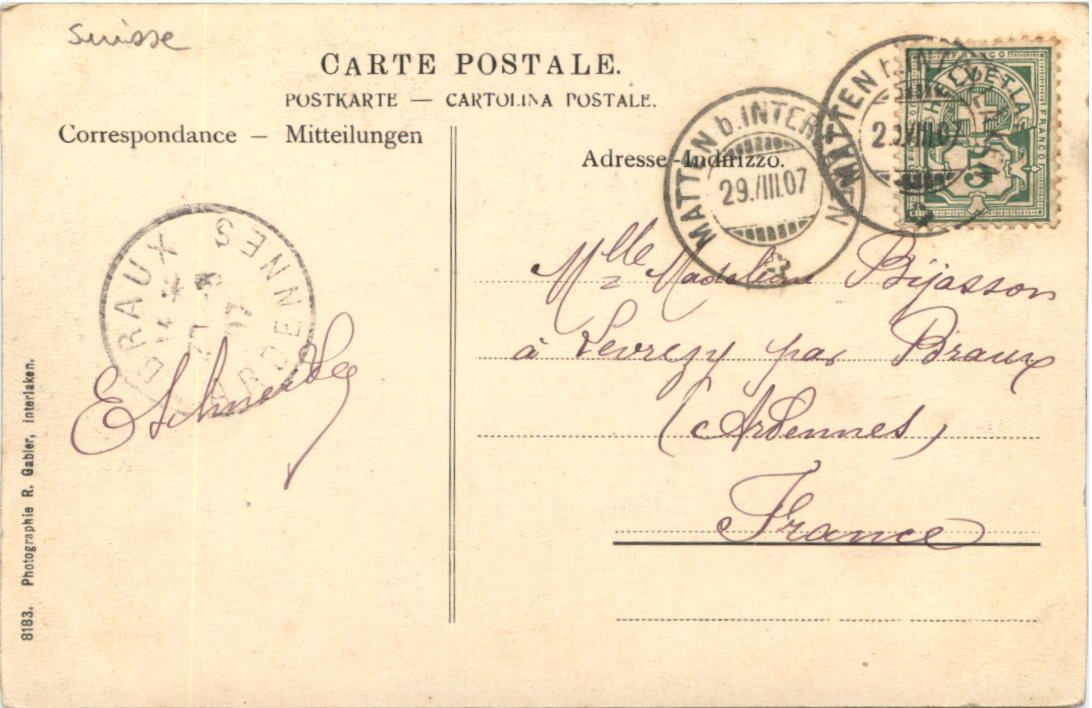 Suisse
CARTE POSTALE.
POSTKARTE — CARTOLINA POSTALE.
Correspondance — Mitteilungen
Adresse - Indirizzo.
MATTEN b. INTERLAKEN
29.III.07
MATTEN b. IN
III.07
FRANCO
HELVETIA
FRANCO
5
BRAUX
ARDENNES
Mlle Madeleine Bijasson
à Levrezy par Braux
(Ardennes)
France
E Schneider
8183. Photographie R. Gabler, Interlaken.